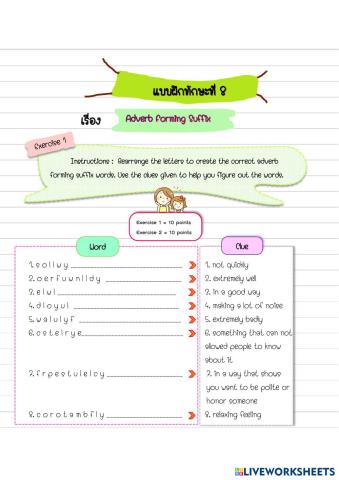 แบบฝึกทักษะที่ 8
เรื่อง Adverb Forming Suffix
Exercise 1
Instructions : Rearrange the letters to create the correct adverb
forming suffix words. Use the clues given to help you figure out the words.
Exercise 1 = 10 points
Exercise 2 = 10 points
Word
Clue
1. s o l l w y
1. not quickly
2. o e r f u w n l l d y
2. extremely well
3. e l w l
3. in a good way
4. d l o y u l
4. making a lot of noise
5. w a l u l y f
5. extremely badly
6. c s t e l r y e
6. something that can not
allowed people to know
about it
7. f r p e s t u l e l c y
7. in a way that shows
you want to be polite or
honor someone
8. c o r o t a m b f l y
8. relaxing feeling
LIVEWORKSHEETS